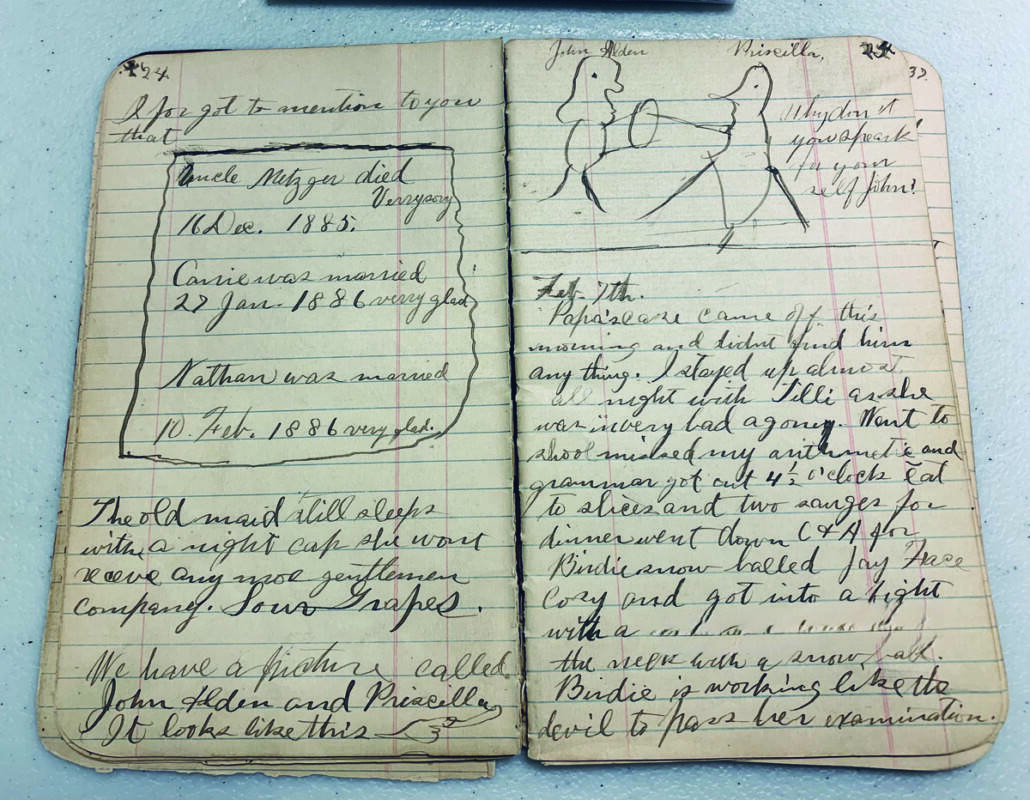 24
I for got to mention to you
that
Uncle Metzger died
Verry sory
16 Dec. 1885.
Carrie was married
27 Jan. 1886 verry glad
Nathan was married
10. Feb. 1886 very glad.
The old maid still sleeps
with a night cap she wont
receve any moe gentlemen
company. Sour Grapes.
We have a picture called
John Alden and Priscilla
It looks like this
John Alden Priscilla,
Why don't
you speack
for your
self John?
32
Feb. 7th.
Papa's case came off this
morning and didnt find him
any thing. I stayed up almost
all night with Tilli as she
was in very bad agony. Went to
shool missed my arithmetic and
grammar got out 4½ o'clock Eat
to slices and two sauges for
dinner went down C & A for
Birdie snow balled Jay Face
Cozy and got into a fight
with a
the neck with a snow ball.
Birdie is working like the
devil to pass her examination.